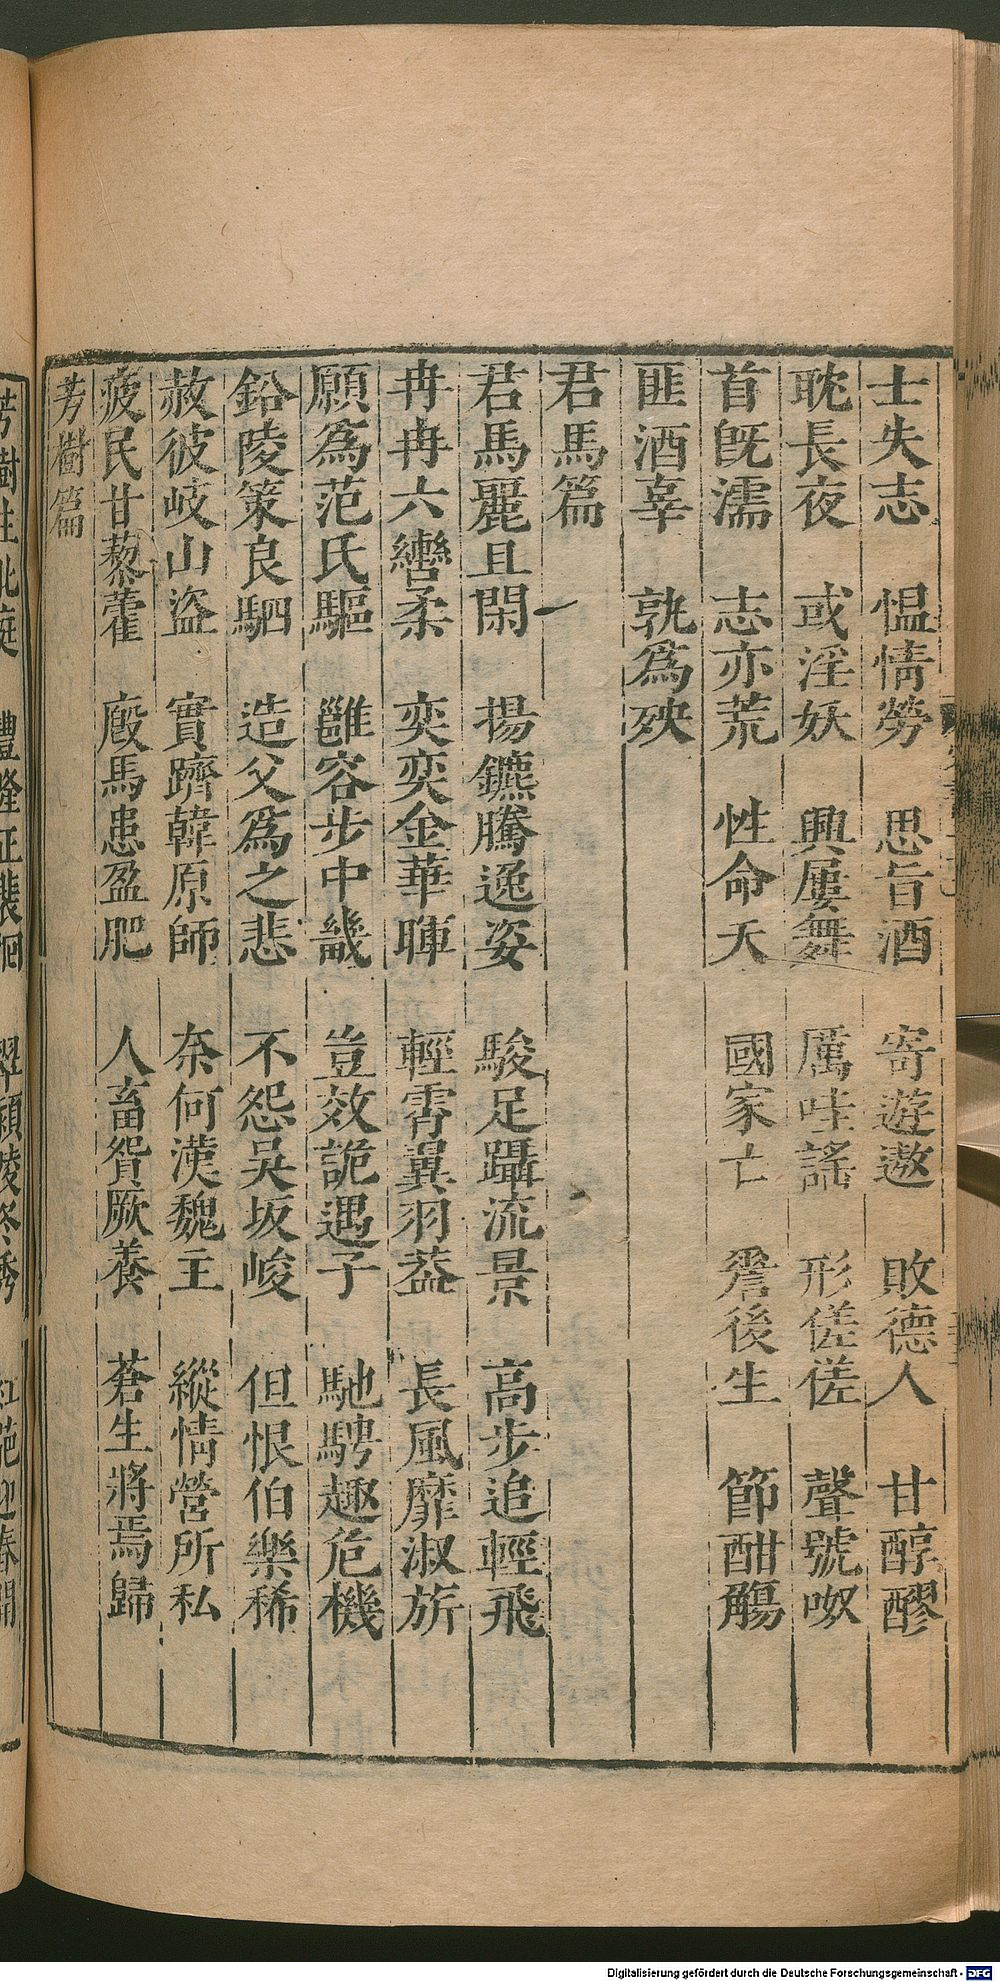 士失志　愠情勞　思旨酒　寄遊遨　敗德人　甘醇醪
耽長夜　或淫妖　興屢舞　厲哇謠　形傞傞　聲號呶
首旣濡　志亦荒　性命夭　國家亡　嗟後生　節酣觴
匪酒辜　孰爲殃
君馬篇
君馬麗且閑　揚鑣騰逸姿　駿足躡流景　高步追輕飛
冉冉六轡柔　奕奕金華暉　輕霄翼羽葢　長風靡淑旂
願爲范氏驅　雝容步中畿　豈效詭遇子　馳騁趣危機
鉛陵策良駟　造父爲之悲　不怨吳坂峻　但恨伯樂稀
赦彼岐山盜　實躋韓原師　奈何漢魏主　縱情營所私
疲民甘藜藿　廄馬患盈肥　人畜貿厥養　蒼生將焉歸
芳樹篇
Digitalisierung gefördert durch die Deutsche Forschungsgemeinschaft - DFG